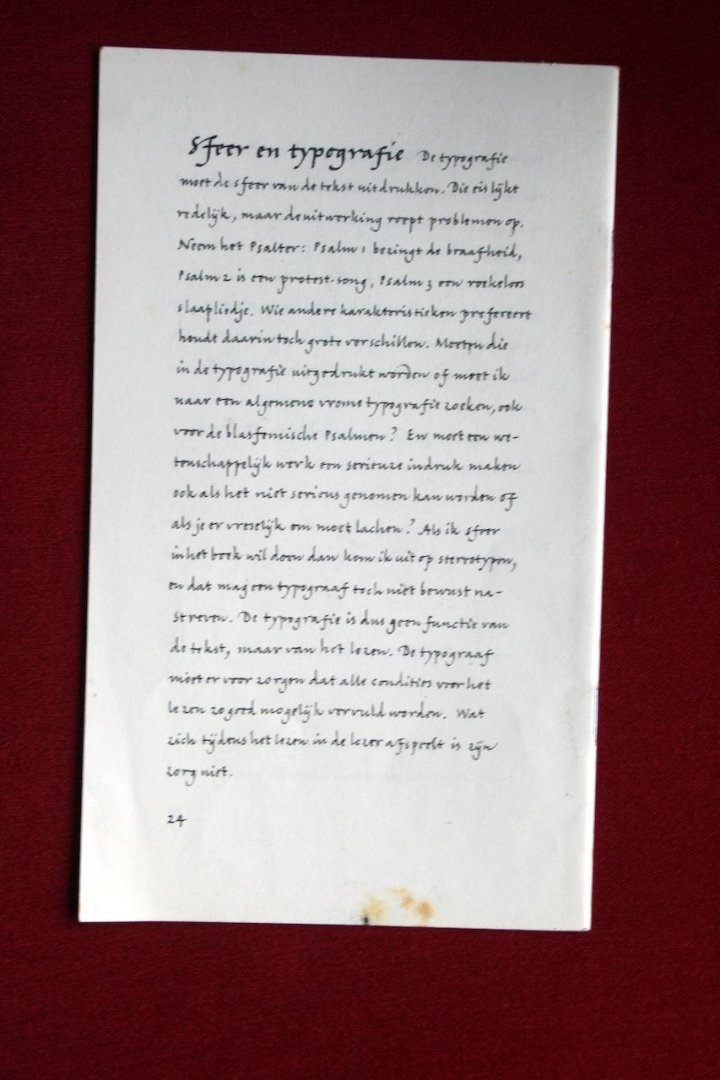 Sfeer en typografie De typografie
moet de sfeer van de tekst uitdrukken. Die eis lijkt
redelijk, maar de uitwerking roept problemen op.
Neem het Psalter: Psalm 1 bezingt de braafheid,
Psalm 2 is een protest-song, Psalm 3 een roekeloos
slaapliedje. Wie andere karakteristieken prefereert
houdt daarin toch grote verschillen. Moeten die
in de typografie uitgedrukt worden of moet ik
naar een algemene vrome typografie zoeken, ook
voor de blasfemische Psalmen? En moet een we-
tenschappelijk werk een serieuze indruk maken
ook als het niet serieus genomen kan worden of
als je er vreselijk om moet lachen? Als ik sfeer
in het boek wil doen dan kom ik uit op stereotypen,
en dat mag een typograaf toch niet bewust na-
streven. De typografie is dus geen functie van
de tekst, maar van het lezen. De typograaf
moet er voor zorgen dat alle condities voor het
lezen zo goed mogelijk vervuld worden. Wat
zich tijdens het lezen in de lezer afspeelt is zijn
zorg niet.
24